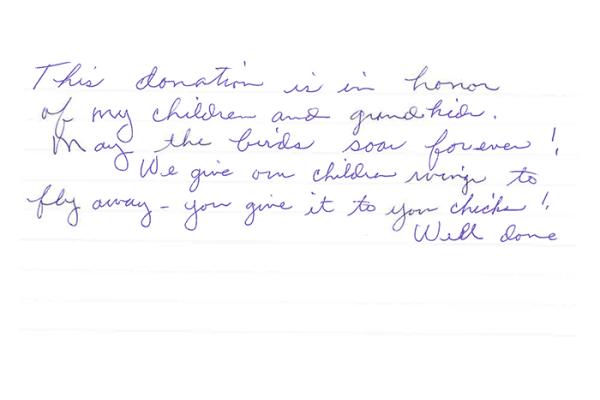 This donation is in honor
of my children and grandkids.
May the birds soar forever!
We give our children wings to
fly away - you give it to your chicks!
Well done